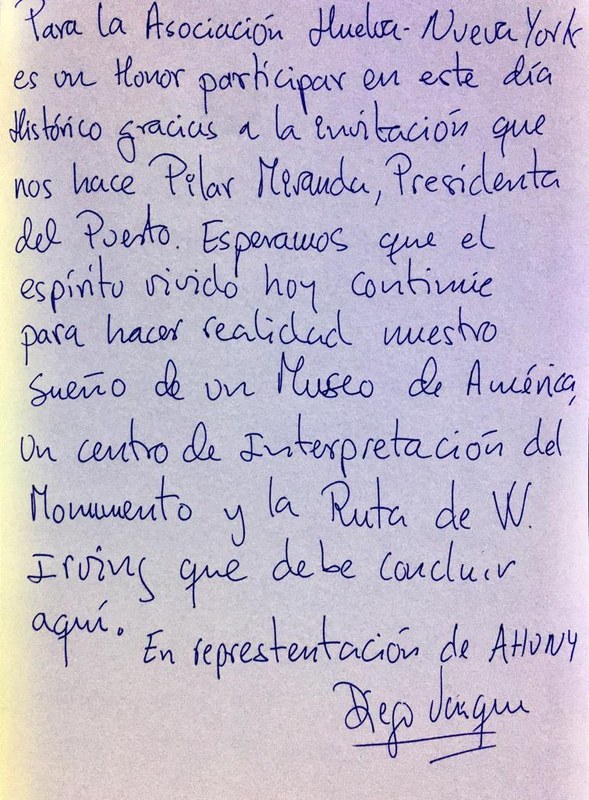 Para la Asociación Huelva-Nueva York
es un Honor participar en este día
Histórico gracias a la invitación que
nos hace Pilar Miranda, Presidenta
del Puerto. Esperamos que el
espíritu vivido hoy continúe
para hacer realidad nuestro
sueño de un Museo de América,
Un centro de Interpretación del
Monumento y la Ruta de W.
Irving que debe concluir
aquí.
En represtentación de AHUNY
Diego